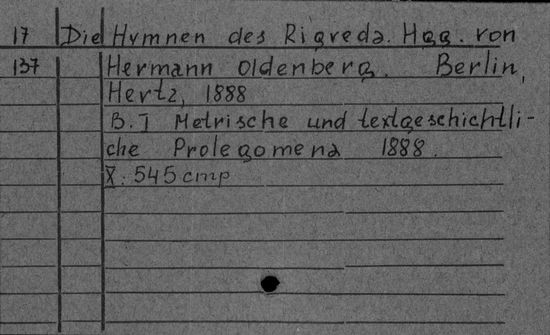 17 Die Hymnen des Rigveda. Hgg. von
137 Hermann Oldenberg. Berlin,
Hertz, 1888
B. I Metrische und textgeschichtli-
che Prolegomena 1888.
X. 545 cmp